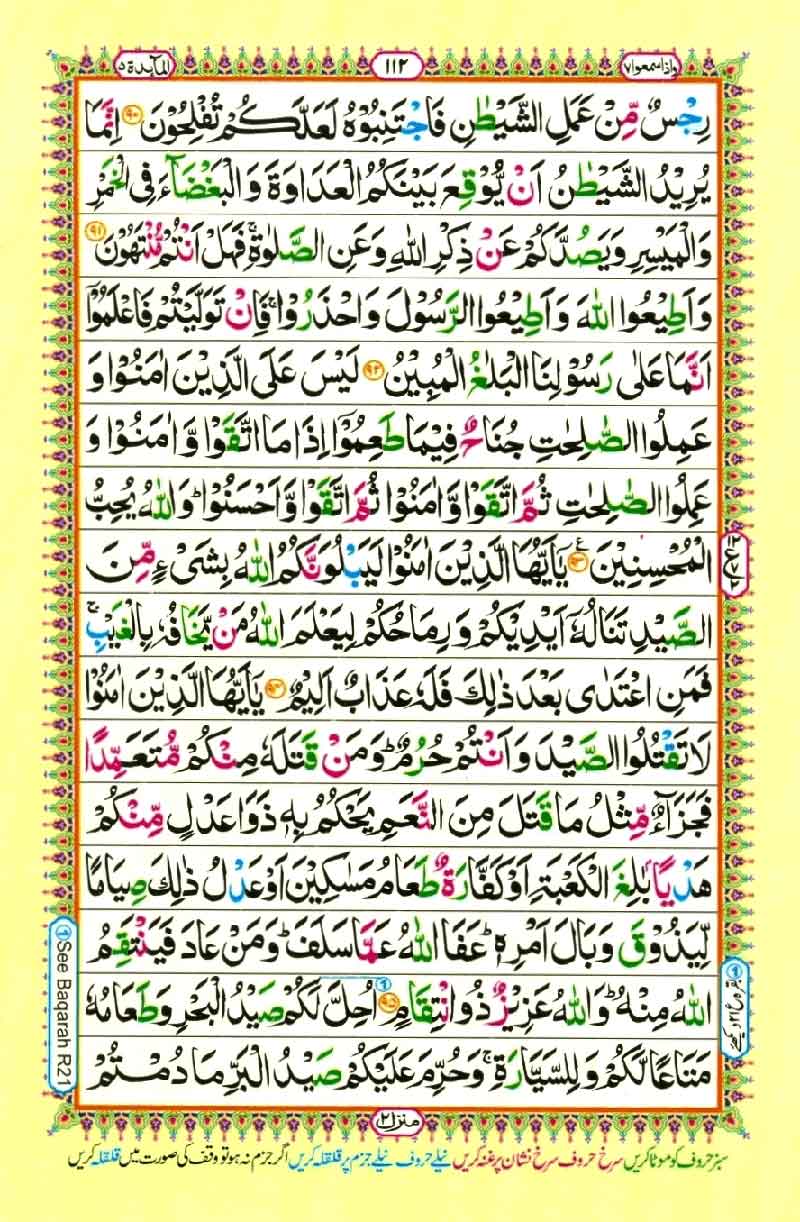 واذاسمعوا۷
۱۱۲
المآىِٕدة ۵
رِجْسٌ مِّنْ عَمَلِ الشَّیْطٰنِ فَاجْتَنِبُوْهُ لَعَلَّكُمْ تُفْلِحُوْنَ ۹۰ اِنَّمَا
یُرِیْدُ الشَّیْطٰنُ اَنْ یُّوْقِعَ بَیْنَكُمُ الْعَدَاوَةَ وَ الْبَغْضَآءَ فِی الْخَمْرِ
وَالْمَیْسِرِ وَیَصُدَّكُمْ عَنْ ذِكْرِ اللّٰهِ وَعَنِ الصَّلٰوةِ ۚ فَهَلْ اَنْتُمْ مُّنْتَهُوْنَ ۹۱
وَاَطِیْعُوا اللّٰهَ وَاَطِیْعُوا الرَّسُوْلَ وَاحْذَرُوْا ۚ فَاِنْ تَوَلَّیْتُمْ فَاعْلَمُوْۤا
اَنَّمَا عَلٰی رَسُوْلِنَا الْبَلٰغُ الْمُبِیْنُ ۹۲ لَیْسَ عَلَی الَّذِیْنَ اٰمَنُوْا وَ
عَمِلُوا الصّٰلِحٰتِ جُنَاحٌ فِیْمَا طَعِمُوْۤا اِذَا مَا اتَّقَوْا وَّاٰمَنُوْا وَ
عَمِلُوا الصّٰلِحٰتِ ثُمَّ اتَّقَوْا وَّاٰمَنُوْا ثُمَّ اتَّقَوْا وَّاَحْسَنُوْا ؕ وَاللّٰهُ یُحِبُّ
الْمُحْسِنِیْنَ ۹۳ یٰۤاَیُّهَا الَّذِیْنَ اٰمَنُوْا لَیَبْلُوَنَّكُمُ اللّٰهُ بِشَیْءٍ مِّنَ
الصَّیْدِ تَنَالُهٗۤ اَیْدِیْكُمْ وَرِمَاحُكُمْ لِیَعْلَمَ اللّٰهُ مَنْ یَّخَافُهٗ بِالْغَیْبِ ۚ
فَمَنِ اعْتَدٰی بَعْدَ ذٰلِكَ فَلَهٗ عَذَابٌ اَلِیْمٌ ۹۴ یٰۤاَیُّهَا الَّذِیْنَ اٰمَنُوْا
لَا تَقْتُلُوا الصَّیْدَ وَاَنْتُمْ حُرُمٌ ؕ وَمَنْ قَتَلَهٗ مِنْكُمْ مُّتَعَمِّدًا
فَجَزَآءٌ مِّثْلُ مَا قَتَلَ مِنَ النَّعَمِ یَحْكُمُ بِهٖ ذَوَا عَدْلٍ مِّنْكُمْ
هَدْیًۢا بٰلِغَ الْكَعْبَةِ اَوْ كَفَّارَةٌ طَعَامُ مَسٰكِیْنَ اَوْ عَدْلُ ذٰلِكَ صِیَامًا
لِّیَذُوْقَ وَبَالَ اَمْرِهٖ ؕ عَفَا اللّٰهُ عَمَّا سَلَفَ ؕ وَمَنْ عَادَ فَیَنْتَقِمُ
اللّٰهُ مِنْهُ ؕ وَاللّٰهُ عَزِیْزٌ ذُو انْتِقَامٍ ۹۵ اُحِلَّ لَكُمْ صَیْدُ الْبَحْرِ وَطَعَامُهٗ
مَتَاعًا لَّكُمْ وَلِلسَّیَّارَةِ ۚ وَحُرِّمَ عَلَیْكُمْ صَیْدُ الْبَرِّ مَا دُمْتُمْ
See Baqarah R21
منزل۲
سبز حروف کو موٹا کریں سرخ حروف سرخ نشان پر غنہ کریں نیلے حروف نیلے جزم پر قلقلہ کریں اگر جزم نہ ہو تو وقف کی صورت میں قلقلہ کریں